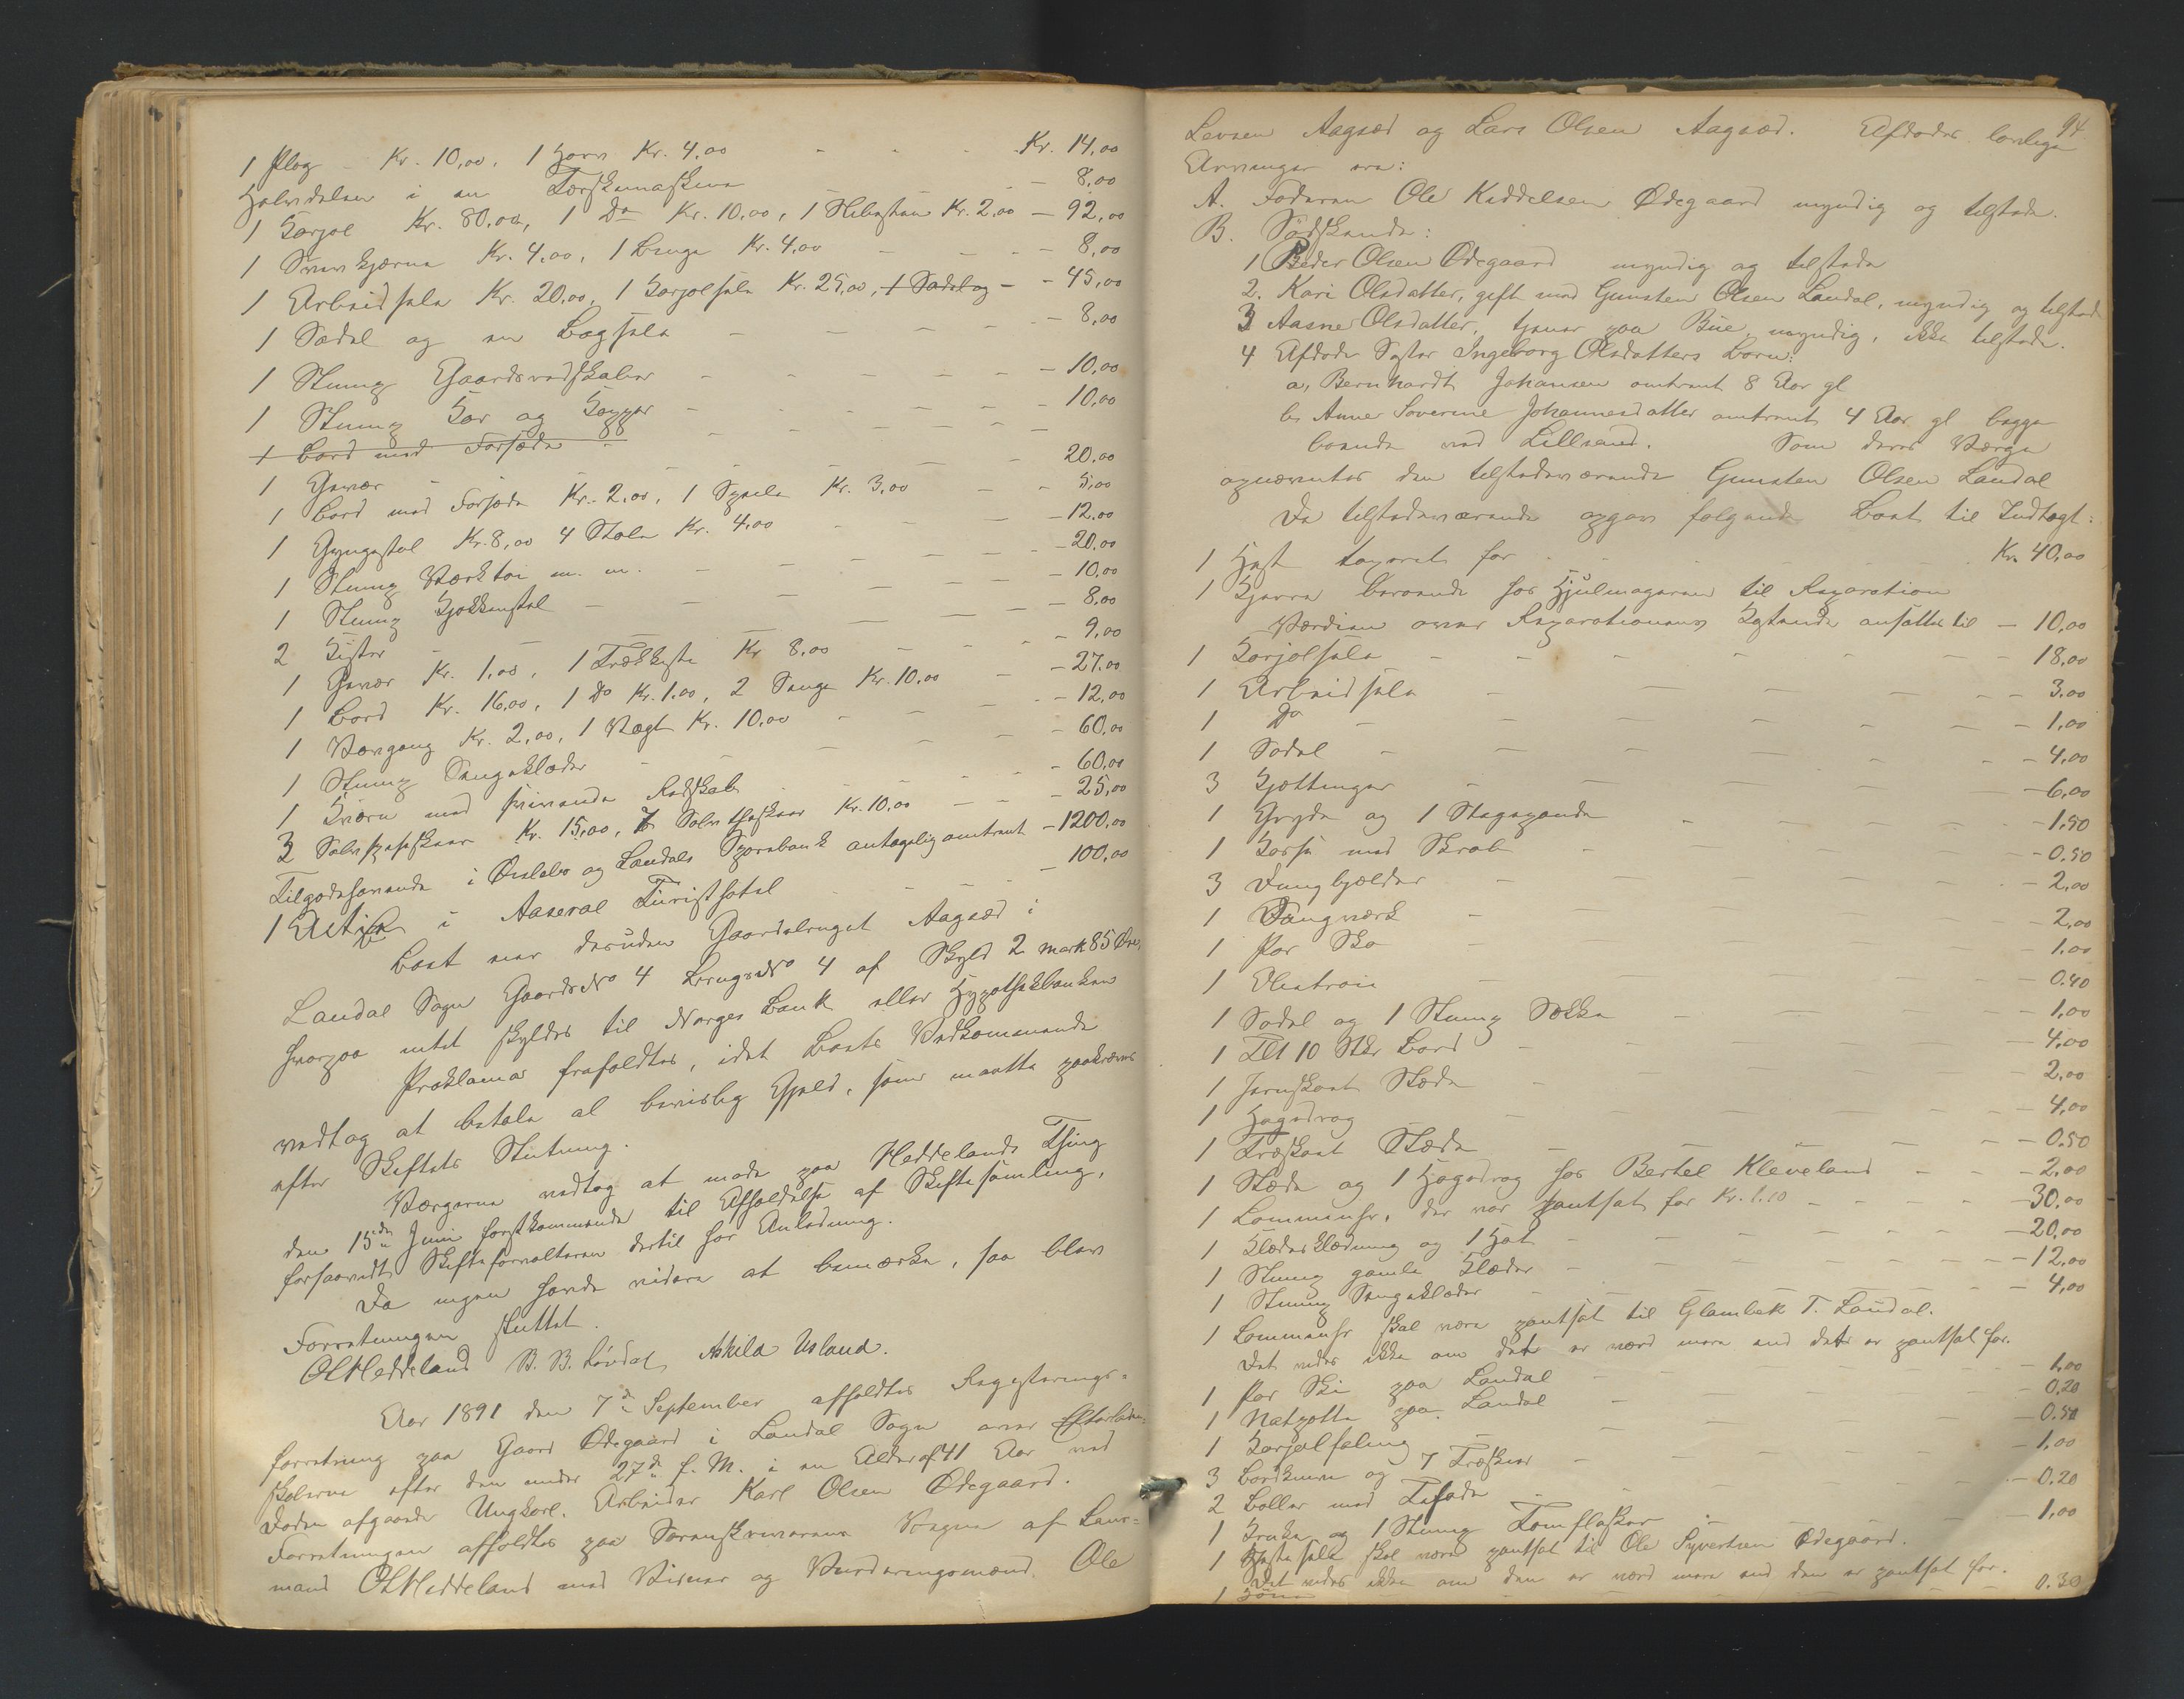 1 Plog Kr. 10,00, 1 Harv Kr. 4,00 - - - Kr. 14,00
Halvdelen i en Tærskemaskine - 8,00
1 Karjol Kr. 80,00, 1 Do Kr. 10,00, 1 Slibesten Kr. 2,00 - 92,00
1 Svinekjærne Kr. 4,00, 1 Kr. 4,00 - - - 8,00
1 Arbeidssele Kr. 20,00, 1 Karjolsele Kr. 25,00, 1 Sadel og - - 45,00
1 Sadel og en Bagsele - - - - 8,00
1 Slump Gaardsredskaber - - - - - 10,00
1 Slump Kar og Kopper - - - - - 10,00
1 Bord med Forsæde -
1 Gevær - - - - - 20,00
1 Bord med Forsæde Kr. 2,00, 1 Kr. 3,00 - - 5,00
1 Gyngestol Kr. 8,00 4 Stole Kr. 4,00 - - - 12,00
1 Slump Værktøi m. m. - - - - - 20,00
1 Slump Kjøkkentøi - - - - - 10,00
2 Kister - - - - - 8,00
1 Gevær Kr. 1,00, 1 Trækkiste Kr 8,00 - - - 9,00
1 Bord Kr. 16,00, 1 Do Kr. 1.00, 2 Senge Kr. 10.00 - 27.00
1 Kr. 2,00, 1 Vægt Kr. 10.00 - - - 12,00
1 Slump Sengeklæder - - - - - 60,00
1 Kværn med tilhørende Redskab - - - 60,00
3 Sølvspiseskeer Kr. 15,00, 7 Sølvtheskeer Kr. 10,00 - - - 25,00
Tilgodehavende i Øislebø og Laudals Sparebank antagelig omtrent - 1200,00
1 Actie i Aaseral Turisthotel - - - - 100,00
Boet eier desuden Gaardsbruget Aagsæd i
Laudal Sogn Gaards No 4 Brugs No 4 af Skyld 2 mark 85 Øre,
hvorpaa intet skyldes til Norges Bank eller Hypothekbanken
Proklama frafaldtes, idet Boets Vedkommende
vedtog at betale al bevislig Gjæld, som maatte paakræves
efter Skiftets Slutning.
Værgerne vedtog at møde paa Heddelands Thing
den 15de Juni førstkommende til Afholdelse af Skiftesamling,
forsaavidt Skifteforvalteren dertil har Anledning.
Da ingen havde videre at bemærke, saa blev
Forretningen sluttet.
OHeddeland B. B. Løvdal Askild Usland.
Aar 1891 den 7de September afholdtes Registrerings-
forretning paa Gaard Ødegaard i Laudal Sogn over Efterladen-
skaberne efter den under 27de f. M. i en Alder af 41 Aar ved
Døden afgaaede Ungkarl, Arbeider Karl Olsen Ødegaard.
Forretningen afholdtes paa Sorenskriverens Vegne af Lens-
mand OHeddeland med Vidner og Vurderingsmænd Ole
94
Larsen Aagsæd og Lars Olsen Aagsæd. Afdødes lovlige
Arvinger ere:
A. Faderen Ole Keddelsen Ødegaard myndig og tilstede.
B. Sødskende:
1 Peder Olsen Ødegaard myndig og tilstede
2. Kari Olsdatter, gift med Gunsten Olsen Laudal, myndig og tilstede
3 Aasne Olsdatter, tjener paa Bue, myndig, ikke tilstede.
4 Afdøde Søster Ingeborg Olsdatters Børn:
a, Bernhardt Johansen omtrent 8 Aar gl
b, Anne Severine Johannesdatter omtrent 4 Aar gl begge
boende ved Lillesand. Som deres Værge
opnævntes den tilstedeværende Gunsten Olsen Laudal
De tilstedeværende opgav følgende Boet til Indtægt:
1 Hest taxeret for - - Kr. 40,00
1 Kjærre beroende hos Hjulmageren til Reparation
Værdien over Reparationens Kostende ansættes til - 10,00
1 Karjolsele - - - - - 18,00
1 Arbeidssele - - - - 3,00
1 Do - - - - - 1,00
1 Sadel - - - - - 4,00
3 Kjættinger - - - - 6,00
1 Gryde og 1 Stegepande - - - - 1,50
1 med Skrab - - - - 0,50
3 Dungbjælder - - - - 2,00
1 - - - - 2,00
1 Par Sko - - - - 1.00
1 - - - - 0.40
1 Sadel og 1 Slump Sække - - - - 1,00
1 Tlt 10 Stkr Bord - - - - 4,00
1 Jernskoet Slæde - - - - 2,00
1 - - - - 4,00
1 Træskoet Slæde - - - - 0.50
1 Slæde og 1 hos Bertel Kleveland - - - 2,00
1 Lommeuhr, der var pantsat for Kr. 1.10 - - - 30,00
1 Klædesklædning og 1 Hat - - - - 20,00
1 Slump gamle Klæder - - - - 12,00
1 Slump Sengeklæder - - - - 4,00
1 Lommeuhr skal være pantsat til Glambek T. Laudal.
Det vides ikke om det er værd mere end det er pantsat for.
1 Par Ski paa Laudal - - - 1,00
1 paa Laudal - - - 0,20
1 Karjol - - - 0.50
3 Bordknive og 7 Træskeer - - - 1,00
2 Boller med - - - 0.20
1 Krukke og 1 Slump Tomflasker - - - 1,00
1 Hestesele skal være pantsat til Ole Syvertsen Ødegaard.
Det vides ikke om den er værd mere end den er pantsat for.
1 - - - 0.30